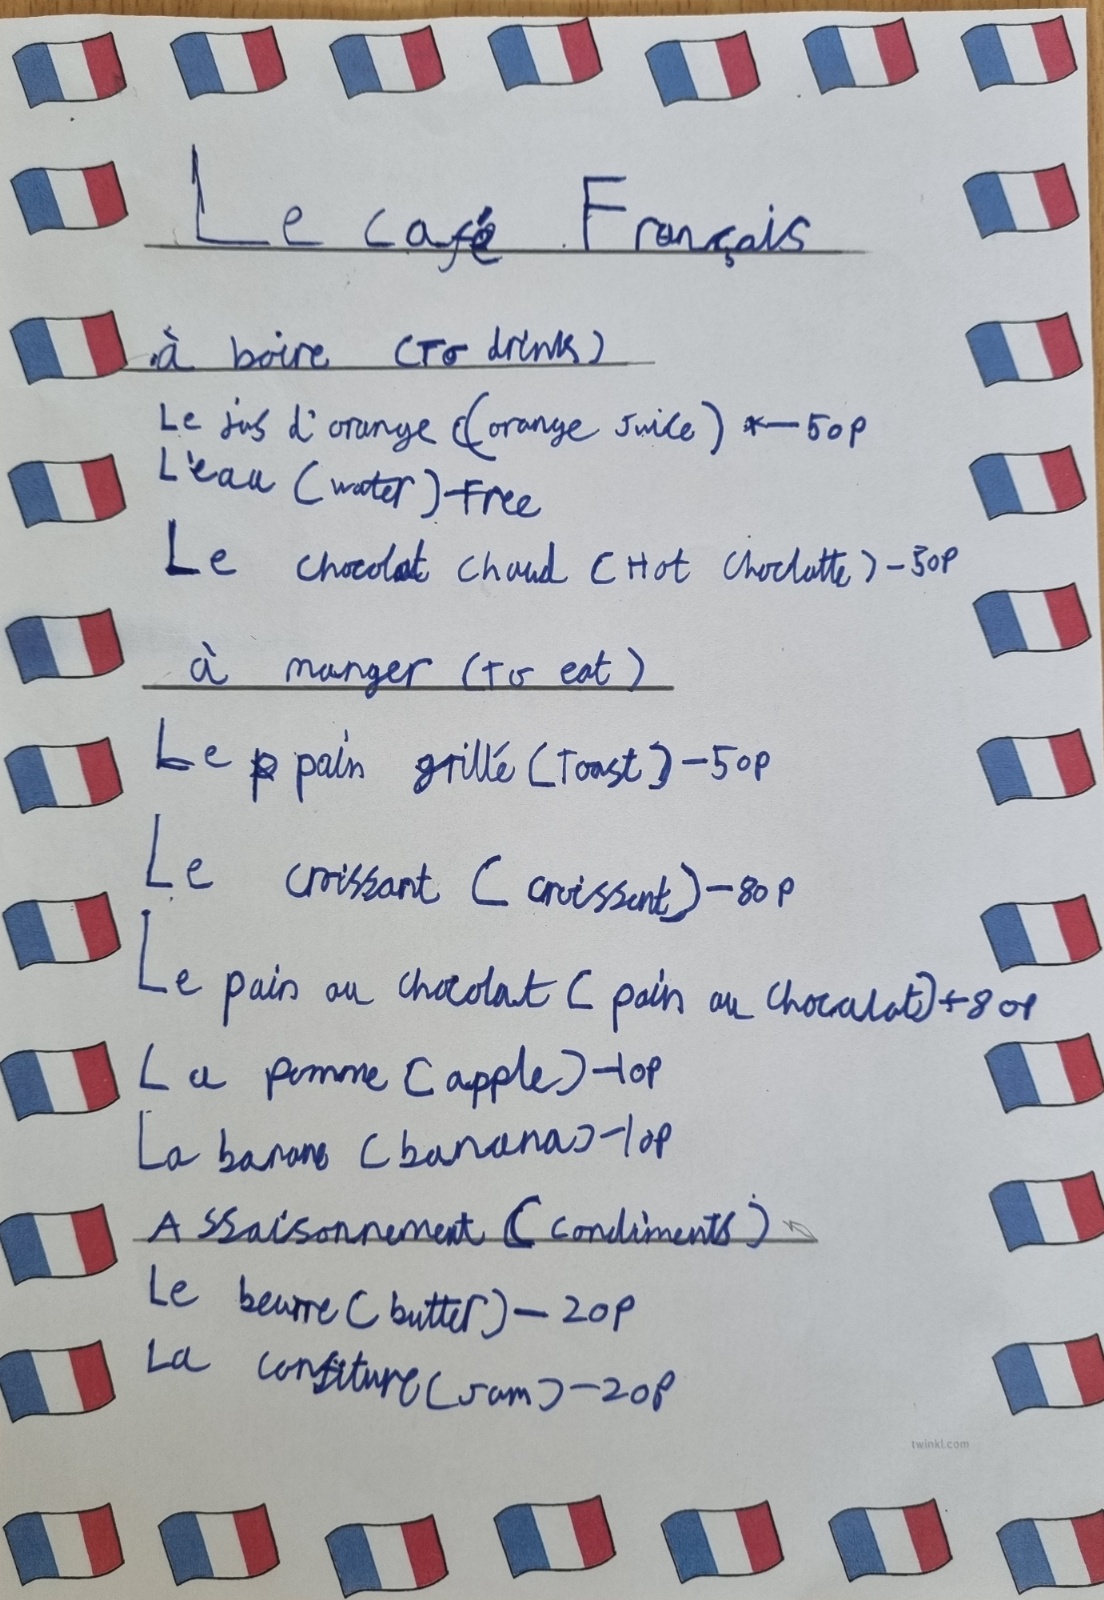 Le café Français
à boire (To drinks)
Le jus d'orange (orange Juice) - 50P
L'eau (water) - Free
Le chocolat chaud (Hot Choclatte) - 50P
à manger (To eat)
Le pain grillé (Toast) - 50P
Le croissant (croissant) - 80P
Le pain au chocolat (pain au chocalat) - 80P
La pomme (apple) - 10P
La banane (banana) - 10P
Assaisonnement (Condiments)
Le beurre (butter) - 20P
La confiture (Jam) - 20P
twinkl.com